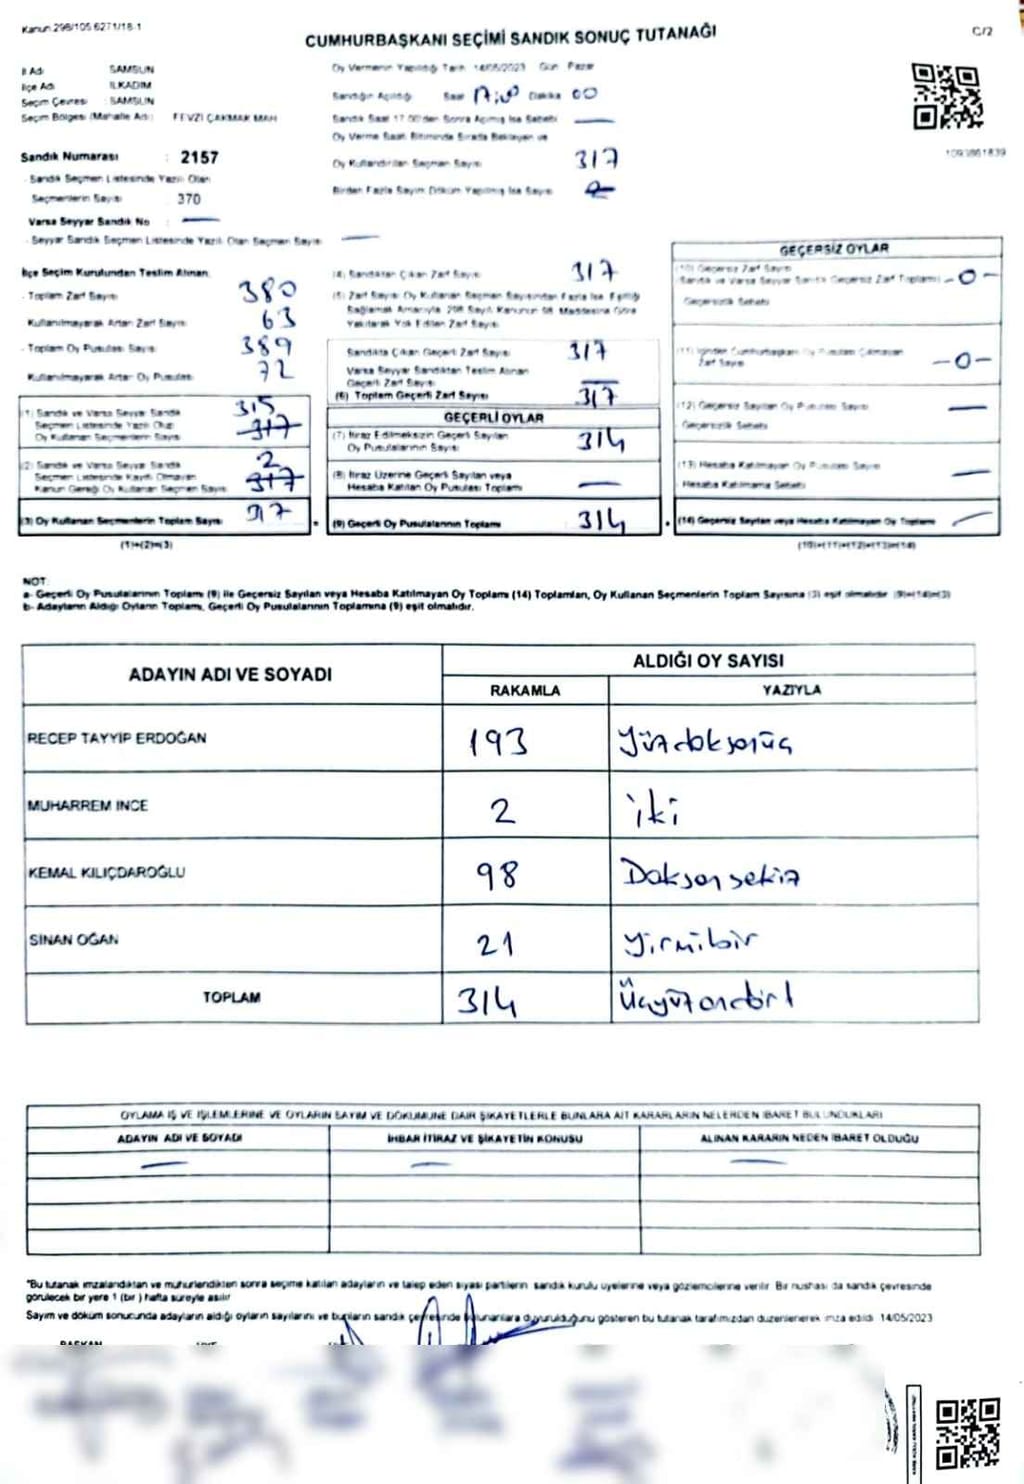 Kanun:298/105 6271/18-1
CUMHURBAŞKANI SEÇİMİ SANDIK SONUÇ TUTANAĞI
C/2
İl Adı SAMSUN
İlçe Adı İLKADIM
Seçim Çevresi : SAMSUN
Seçim Bölgesi (Mahalle Adı) FEVZİ ÇAKMAK MAH
Sandık Numarası : 2157
- Sandık Seçmen Listesinde Yazılı Olan
Seçmenlerin Sayısı 370
Varsa Seyyar Sandık No : —
- Seyyar Sandık Seçmen Listesinde Yazılı Olan Seçmen Sayısı —
Oy Vermenin Yapıldığı Tarih 14/05/2023 Gün Pazar
Sandığın Açıldığı Saat Dakika 00
Sandık Saat 17.00'den Sonra Açılmış İse Sebebi —
Oy Verme Saati Bitiminde Sırada Bekleyen ve
Oy Kullandırılan Seçmen Sayısı 317
Birden Fazla Sayım Döküm Yapılmış İse Sayısı
1093861839
İlçe Seçim Kurulundan Teslim Alınan
- Toplam Zarf Sayısı 380
Kullanılmayarak Artan Zarf Sayısı 63
- Toplam Oy Pusulası Sayısı 389
Kullanılmayarak Artan Oy Pusulası 72
(1) Sandık ve Varsa Seyyar Sandık
Seçmen Listesinde Yazılı Olup
Oy Kullanan Seçmenlerin Sayısı 315 317
(2) Sandık ve Varsa Seyyar Sandık
Seçmen Listesinde Kayıtlı Olmayan
Kanun Gereği Oy Kullanan Seçmen Sayısı 2 317
(3) Oy Kullanan Seçmenlerin Toplam Sayısı 317
(1)+(2)=(3)
(4) Sandıktan Çıkan Zarf Sayısı 317
(5) Zarf Sayısı Oy Kullanan Seçmen Sayısından Fazla İse Eşitliği
Sağlamak Amacıyla 298 Sayılı Kanunun 98 Maddesine Göre
Yakılarak Yok Edilen Zarf Sayısı
Sandıkta Çıkan Geçerli Zarf Sayısı 317
Varsa Seyyar Sandıktan Teslim Alınan
Geçerli Zarf Sayısı —
(6) Toplam Geçerli Zarf Sayısı 317
GEÇERLİ OYLAR
(7) İtiraz Edilmeksizin Geçerli Sayılan
Oy Pusulalarının Sayısı 314
(8) İtiraz Üzerine Geçerli Sayılan veya
Hesaba Katılan Oy Pusulası Toplamı —
(9) Geçerli Oy Pusulalarının Toplamı 314
GEÇERSİZ OYLAR
(10) Geçersiz Zarf Sayısı
(Sandık ve Varsa Seyyar Sandık Geçersiz Zarf Toplamı) -0-
Geçersizlik Sebebi
(11) İçinden Cumhurbaşkanı Oy Pusulası Çıkmayan
Zarf Sayısı -0-
(12) Geçersiz Sayılan Oy Pusulası Sayısı —
Geçersizlik Sebebi
(13) Hesaba Katılmayan Oy Pusulası Sayısı —
Hesaba Katılmama Sebebi
(14) Geçersiz Sayılan veya Hesaba Katılmayan Oy Toplamı —
(10)+(11)+(12)+(13)=(14)
NOT:
a- Geçerli Oy Pusulalarının Toplamı (9) ile Geçersiz Sayılan veya Hesaba Katılmayan Oy Toplamı (14) Toplamları, Oy Kullanan Seçmenlerin Toplam Sayısına (3) eşit olmalıdır. (9)+(14)=(3)
b- Adayların Aldığı Oyların Toplamı, Geçerli Oy Pusulalarının Toplamına (9) eşit olmalıdır.
ADAYIN ADI VE SOYADI ALDIĞI OY SAYISI
RAKAMLA YAZIYLA
RECEP TAYYİP ERDOĞAN 193 Yüzdoksanüç
MUHARREM İNCE 2 iki
KEMAL KILIÇDAROĞLU 98 Doksansekiz
SİNAN OĞAN 21 Yirmibir
TOPLAM 314 Üçyüzondört
OYLAMA İŞ VE İŞLEMLERİNE VE OYLARIN SAYIM VE DÖKÜMÜNE DAİR ŞİKAYETLERLE BUNLARA AİT KARARLARIN NELERDEN İBARET BULUNDUKLARI
ADAYIN ADI VE SOYADI İHBAR İTİRAZ VE ŞİKAYETİN KONUSU ALINAN KARARIN NEDEN İBARET OLDUĞU
— — —
*Bu tutanak imzalandıktan ve mühürlendikten sonra seçime katılan adayların ve talep eden siyasi partilerin sandık kurulu üyelerine veya gözlemcilerine verilir. Bir nüshası da sandık çevresinde
görülecek bir yere 1 (bir) hafta süreyle asılır
Sayım ve döküm sonucunda adayların aldığı oyların sayılarını ve bunların sandık çevresinde bulunanlara duyurulduğunu gösteren bu tutanak tarafımızdan düzenlenerek imza edildi. 14/05/2023
BAŞKAN